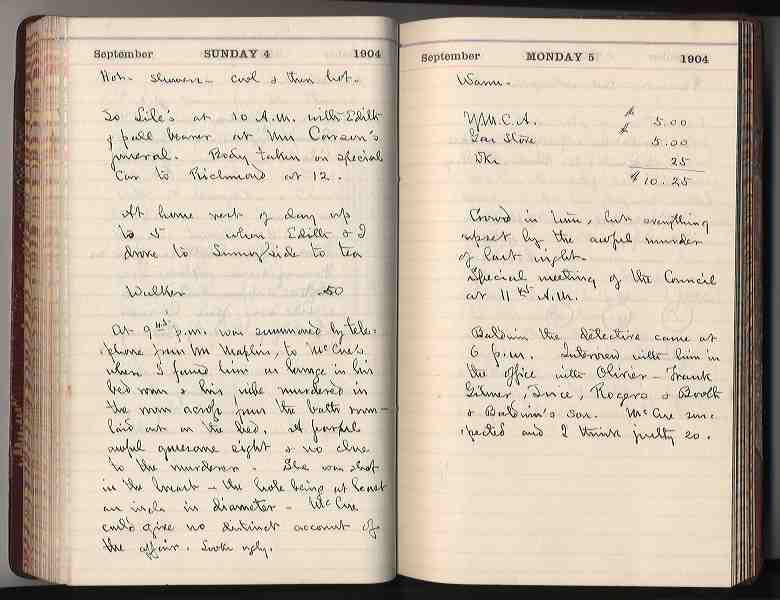 September SUNDAY 4 1904
Hot - showers - cool & then hot.
To Lile's at 10 A.M. with Edith
& pall bearer at Mrs Carson's
funeral. Body taken on special
Car to Richmond at 12.
At home rest of day up
to 5 when Edith & I
drove to Sunnyside to tea
Walker .50
At 9 45 p.m. was summoned by tele-
phone from Mr Maphis, to McCue's
where I found him on lounge in his
bed room & his wife murdered in
the room across from the bath room -
laid out on the bed. A fearful
awful gruesome sight & no clue
to the murderer. She was shot
in the breast - the hole being at least
an inch in diameter - McCue
could give no distinct account of
the affair. Looks ugly.
September MONDAY 5 1904
Warm.
Y.M.C.A. $ 5.00
Gas Stove $ 5.00
25
$ 10.25
Crowd in town, but everything
upset by the awful murder
of last night.
Special meeting of the Council
at 11 A.M.
Baldwin the detective came at
6 p.m. Interview with him in
the office with Olivier - Frank
Gilmer, Rogers &
& Baldwin's son. McCue sus-
pected and I think justly so.